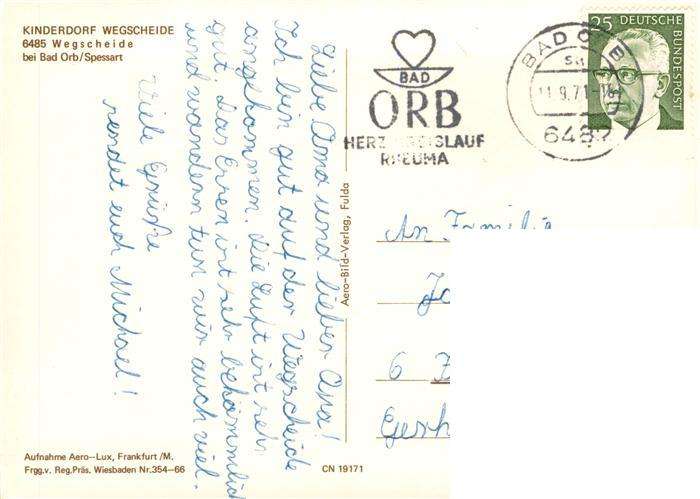 KINDERDORF WEGSCHEIDE
6485 Wegscheide
bei Bad Orb/Spessart
Liebe Oma und lieber Opa!
Ich bin gut auf der Wegscheide
angekommen. Die Luft ist sehr
gut. Das Essen ist sehr bekömmlich
und wandern tun wir auch viel.
Viele Grüße
sendet euch Michael!
Aufnahme Aero-Lux, Frankfurt/M.
Frgg.v. Reg.Präs. Wiesbaden Nr.354-66
CN 19171
Aero-Bild-Verlag, Fulda
BAD
ORB
RHEUMA
BAD ORB
11.9.71-18
6482
25 DEUTSCHE
BUNDESPOST
An Familie
6